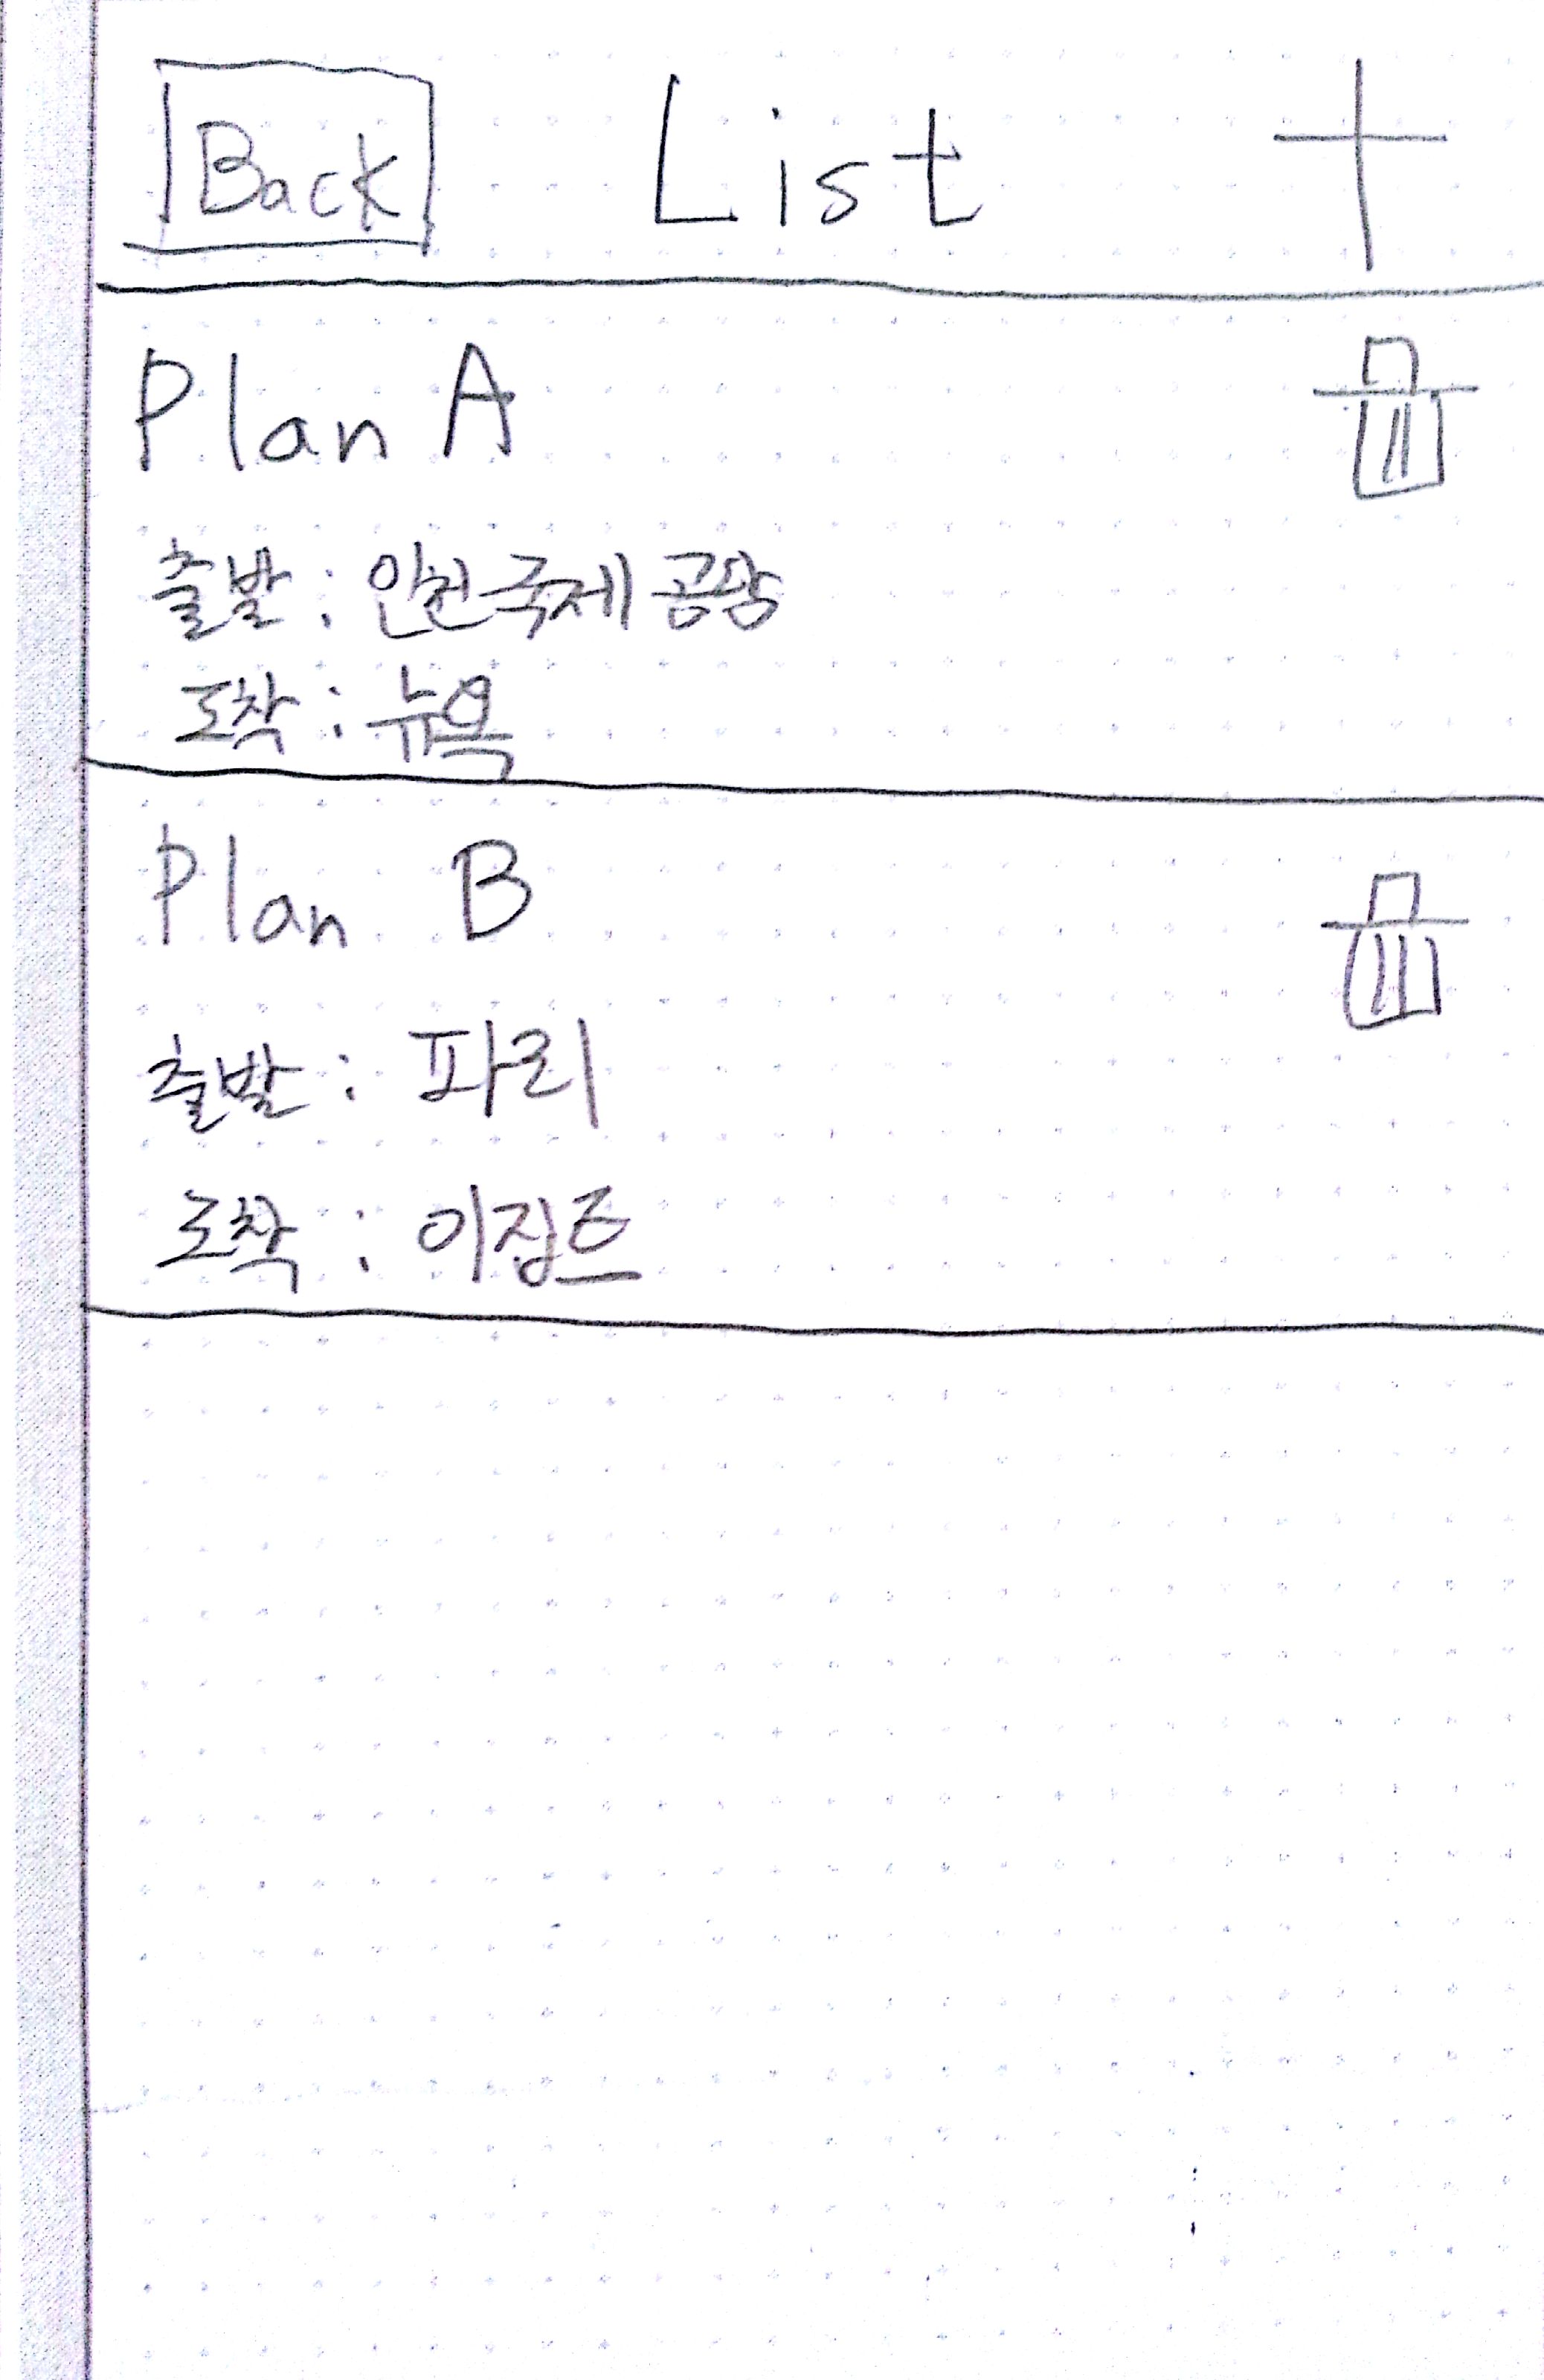 Back List +
Plan A
출발 : 인천국제공항
도착 : 뉴욕
Plan B
출발 : 파리
도착 : 이집트